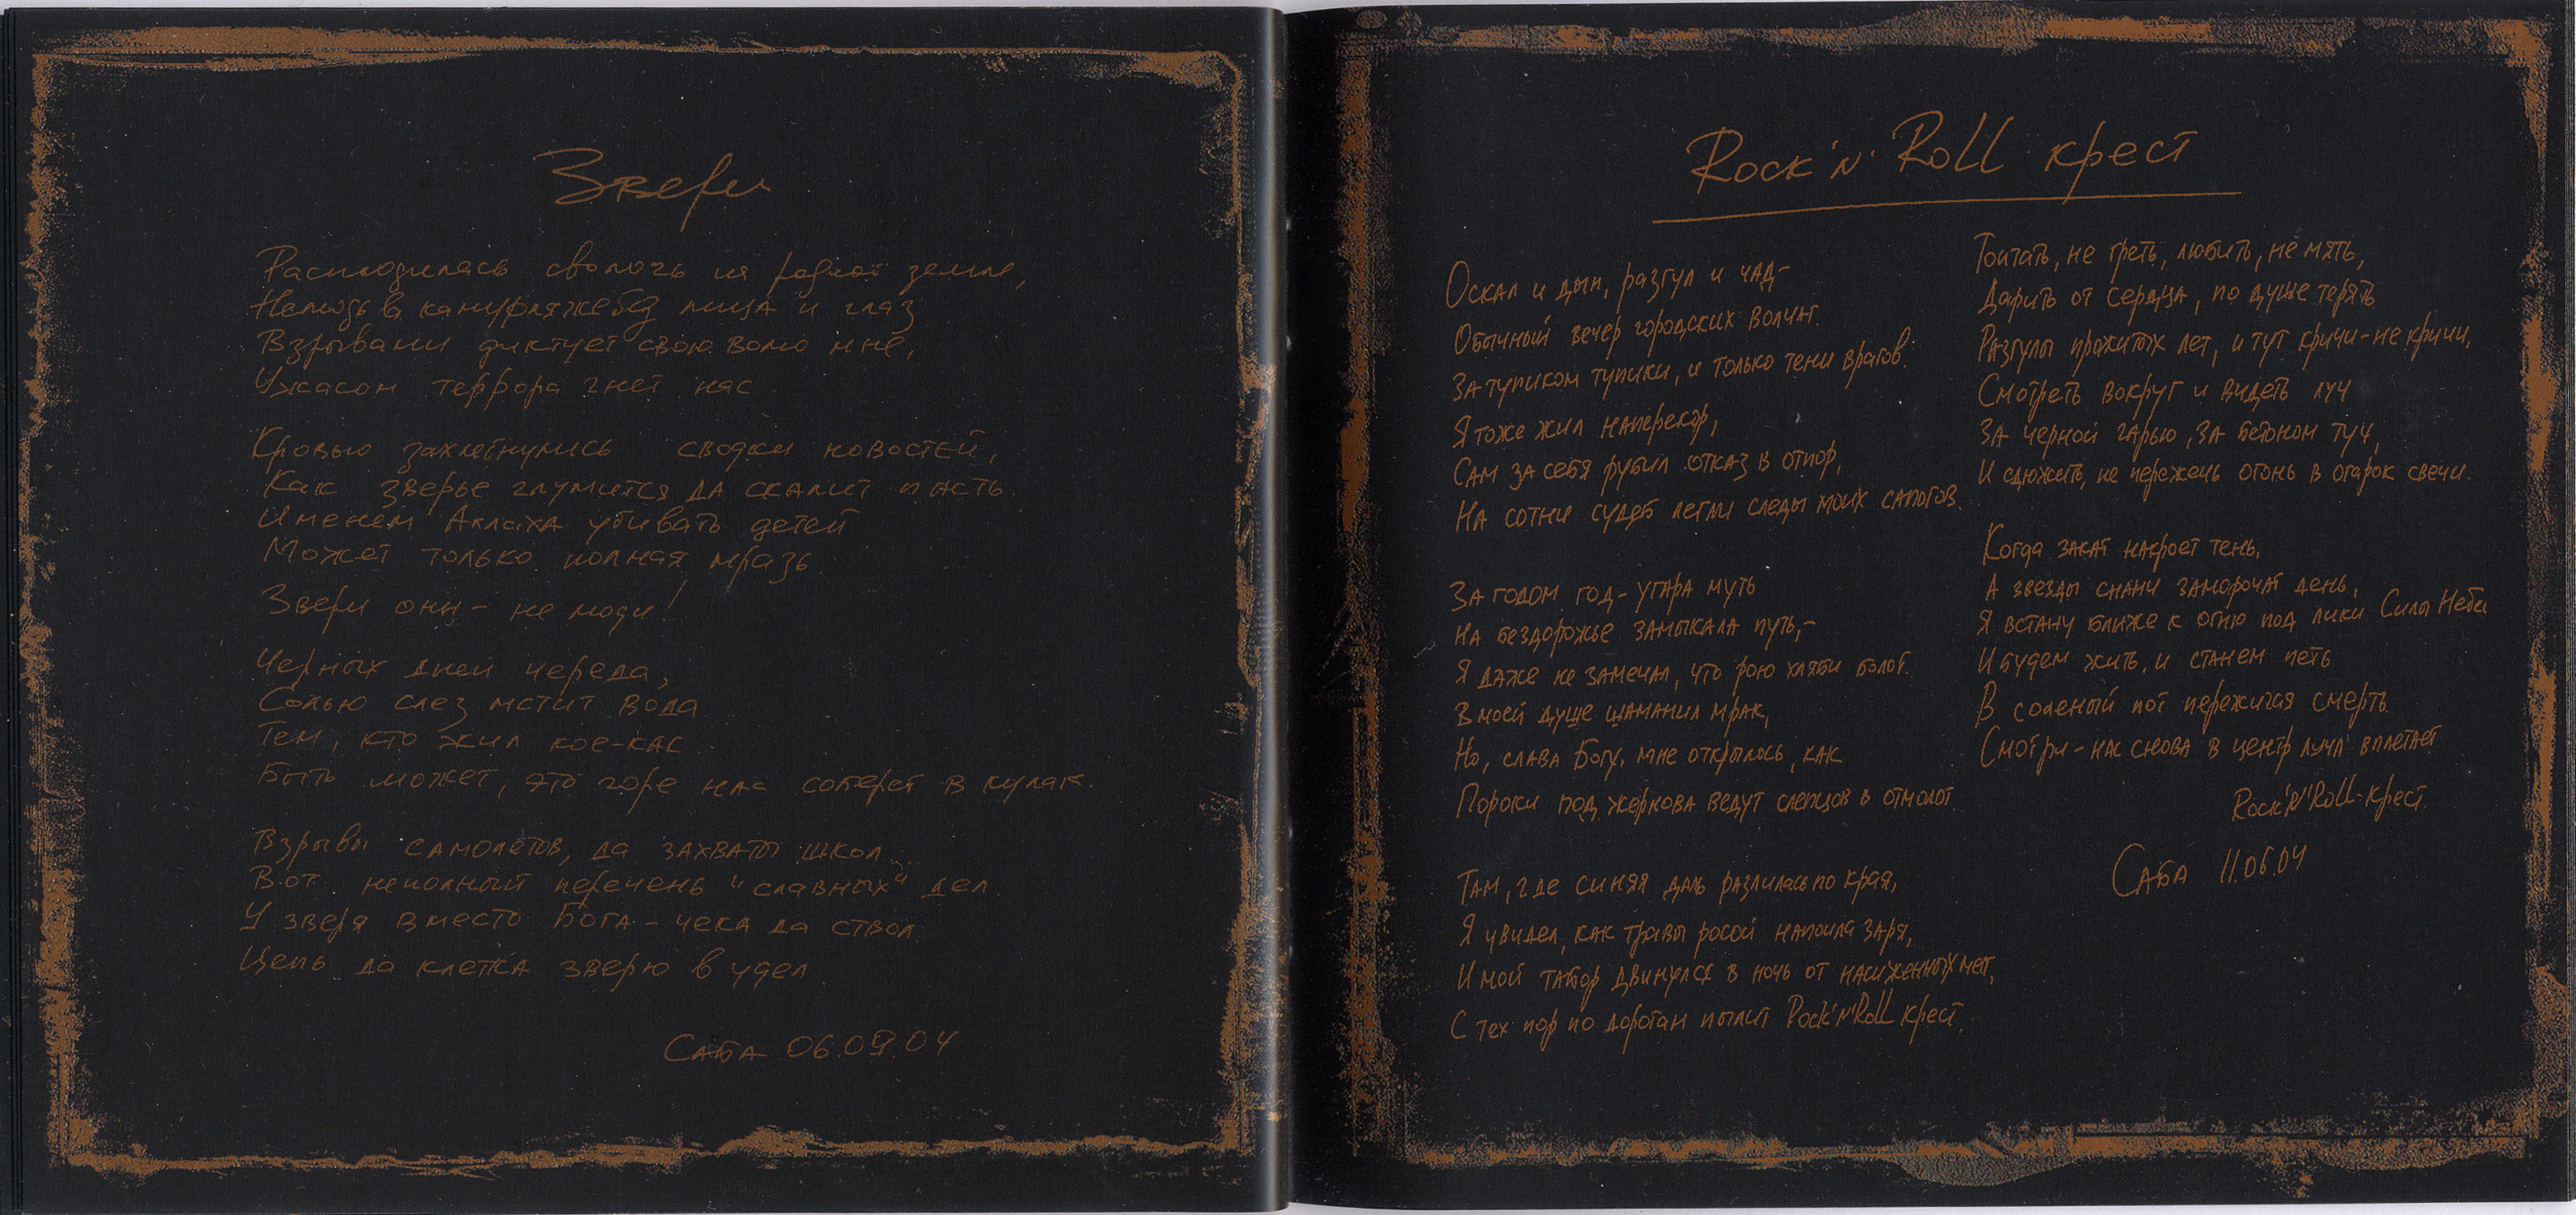 Звери
Расплодилась сволочь на родной земле,
Нелюдь в камуфляже без лица и глаз
Взрывами диктует свою волю мне,
Ужасом террора гнет нас
Кровью захлебнулись сводки новостей,
Как зверье глумится да скалит пасть.
Именем Аллаха убивать детей
Может только полная мразь
Звери они - не люди!
Черных дней череда,
Солью слез мстит вода
Тем, кто жил кое-как.
Быть может, это горе нас соберет в кулак.
Взрывы самолетов, да захваты школ...
Вот неполный перечень "славных" дел.
У зверя вместо Бога - чека да ствол.
Цепь да клетка зверю в удел
САБА 06.09.04
Rock'n'Roll крест
Оскал и дып, разгул и чад-
Обычный вечер городских волчат.
За тупиком тупики, и только тени врагов.
Я тоже жил наперекор,
Сам за себя рубил отказ в отпор,
На сотни судеб легли следы моих сапогов.
За годом год - угара муть
На бездорожье замыкала путь,-
Я даже не замечал, что рою хляби болот.
В моей душе шаманил мрак,
Но, слава Богу, мне открылось, как
Пороки под жернова ведут слепцов в отмолот.
Там, где синяя даль разлилась по края,
Я увидел, как травы росой напоила заря,
И мой табор двинулся в ночь от насиженных мест,
С тех пор по дорогам пылит Rock'n'Roll крест.
Топтать, не греть, любить, не мять,
Дарить от сердца, по душе терять
Разгулы прожитых лет, и тут кричи - не кричи,
Смотреть вокруг и видеть луч
За черной гарью, за бетоном туч,
И сдюжить, не пережечь огонь в огарок свечи.
Когда закат накроет тень,
А звезды снами заморочат день,
Я встану ближе к огню под лики Силы Неба
И будем жить, и станем петь
В соленый пот пережигая смерть.
Смотри - нас снова в центр луча вплетает
Rock'n'Roll-крест.
САБА 11.06.04